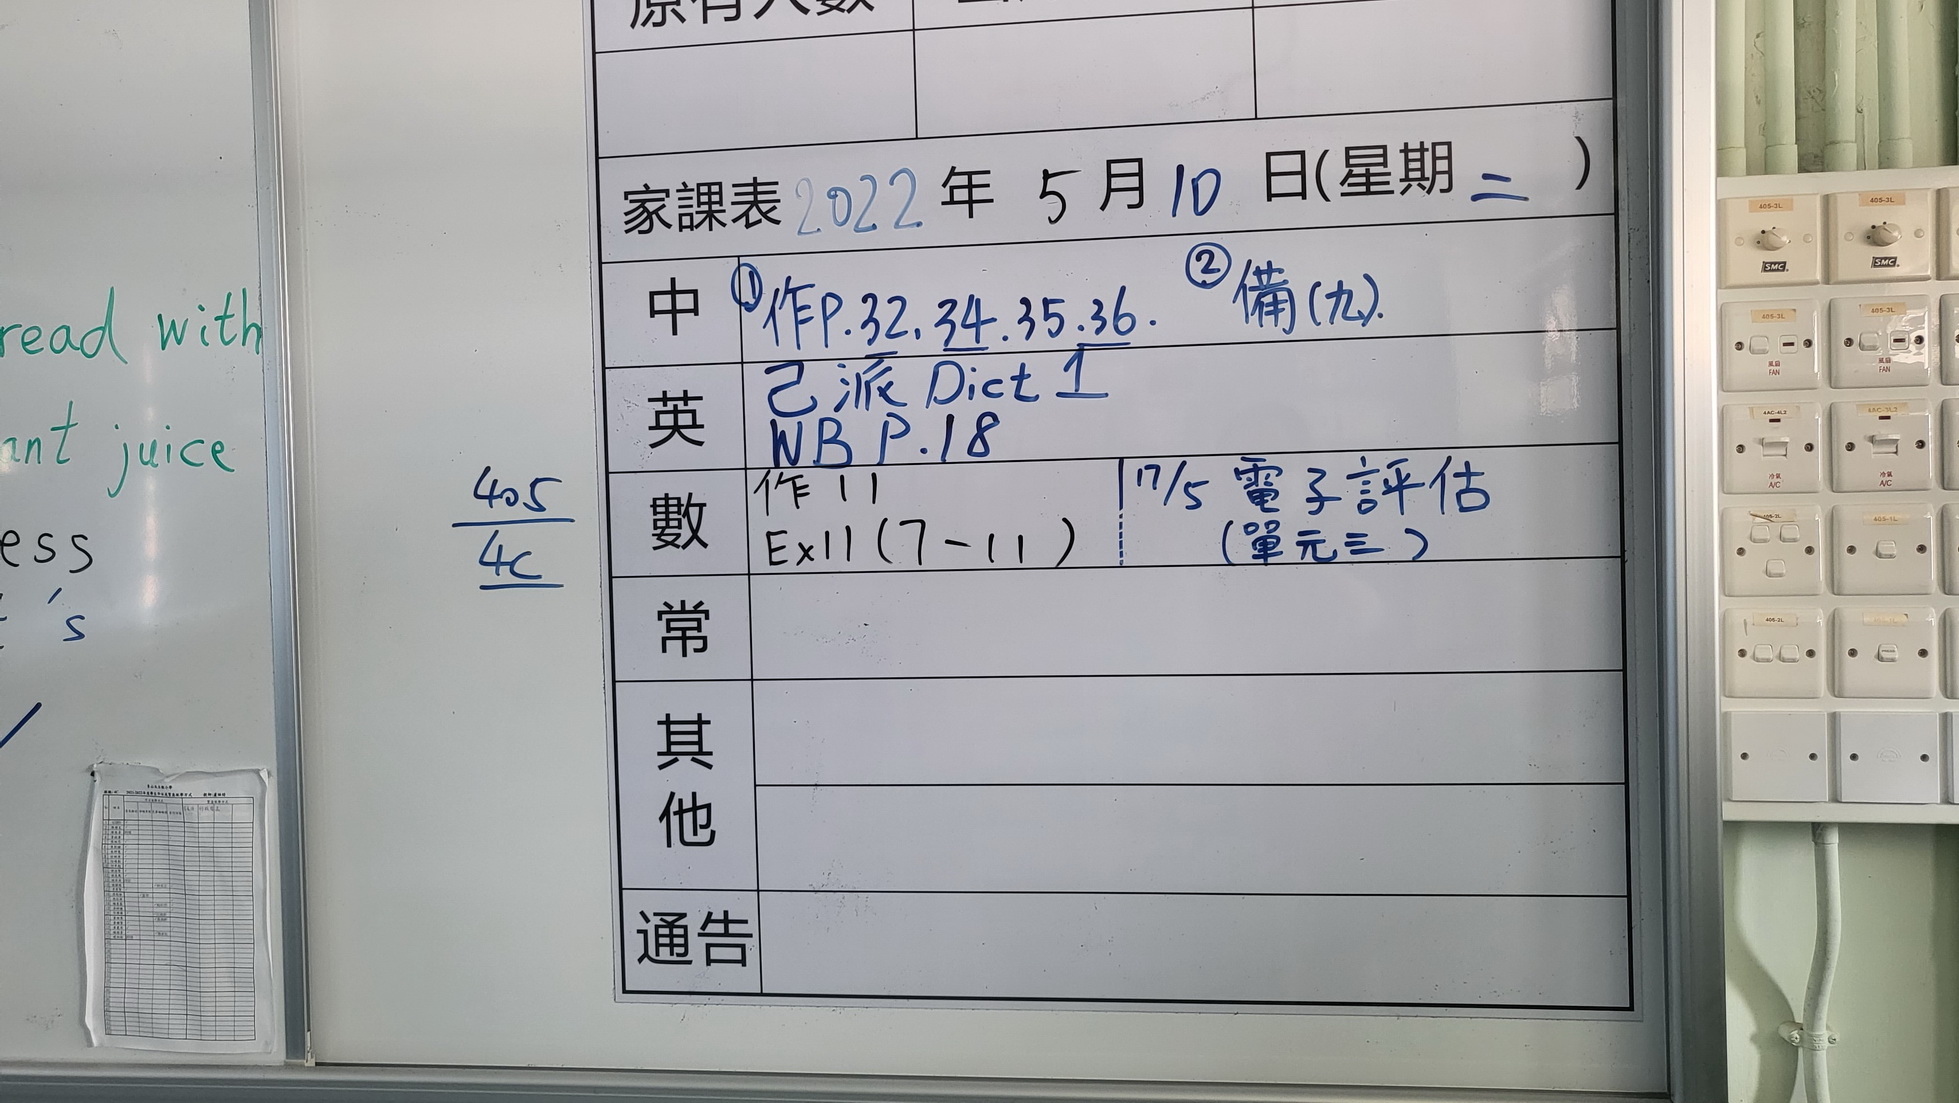 read with
ant juice
ess
's
405
4C
原有人數
家課表 2022 年 5 月 10 日(星期 二 )
中 ①作P.32, 34. 35. 36. ②備(九).
英 己派 Dict 1
WB P.18
數 作 11 17/5 電子評估
Ex11 (7-11) (單元三)
常
其他
通告
405-3L 405-3L
SMC SMC
405-3L 405-3L
風扇 風扇
FAN FAN
4AC-4L2 4AC-3L2
冷氣 冷氣
A/C A/C
405-3L 405-1L
405-2L